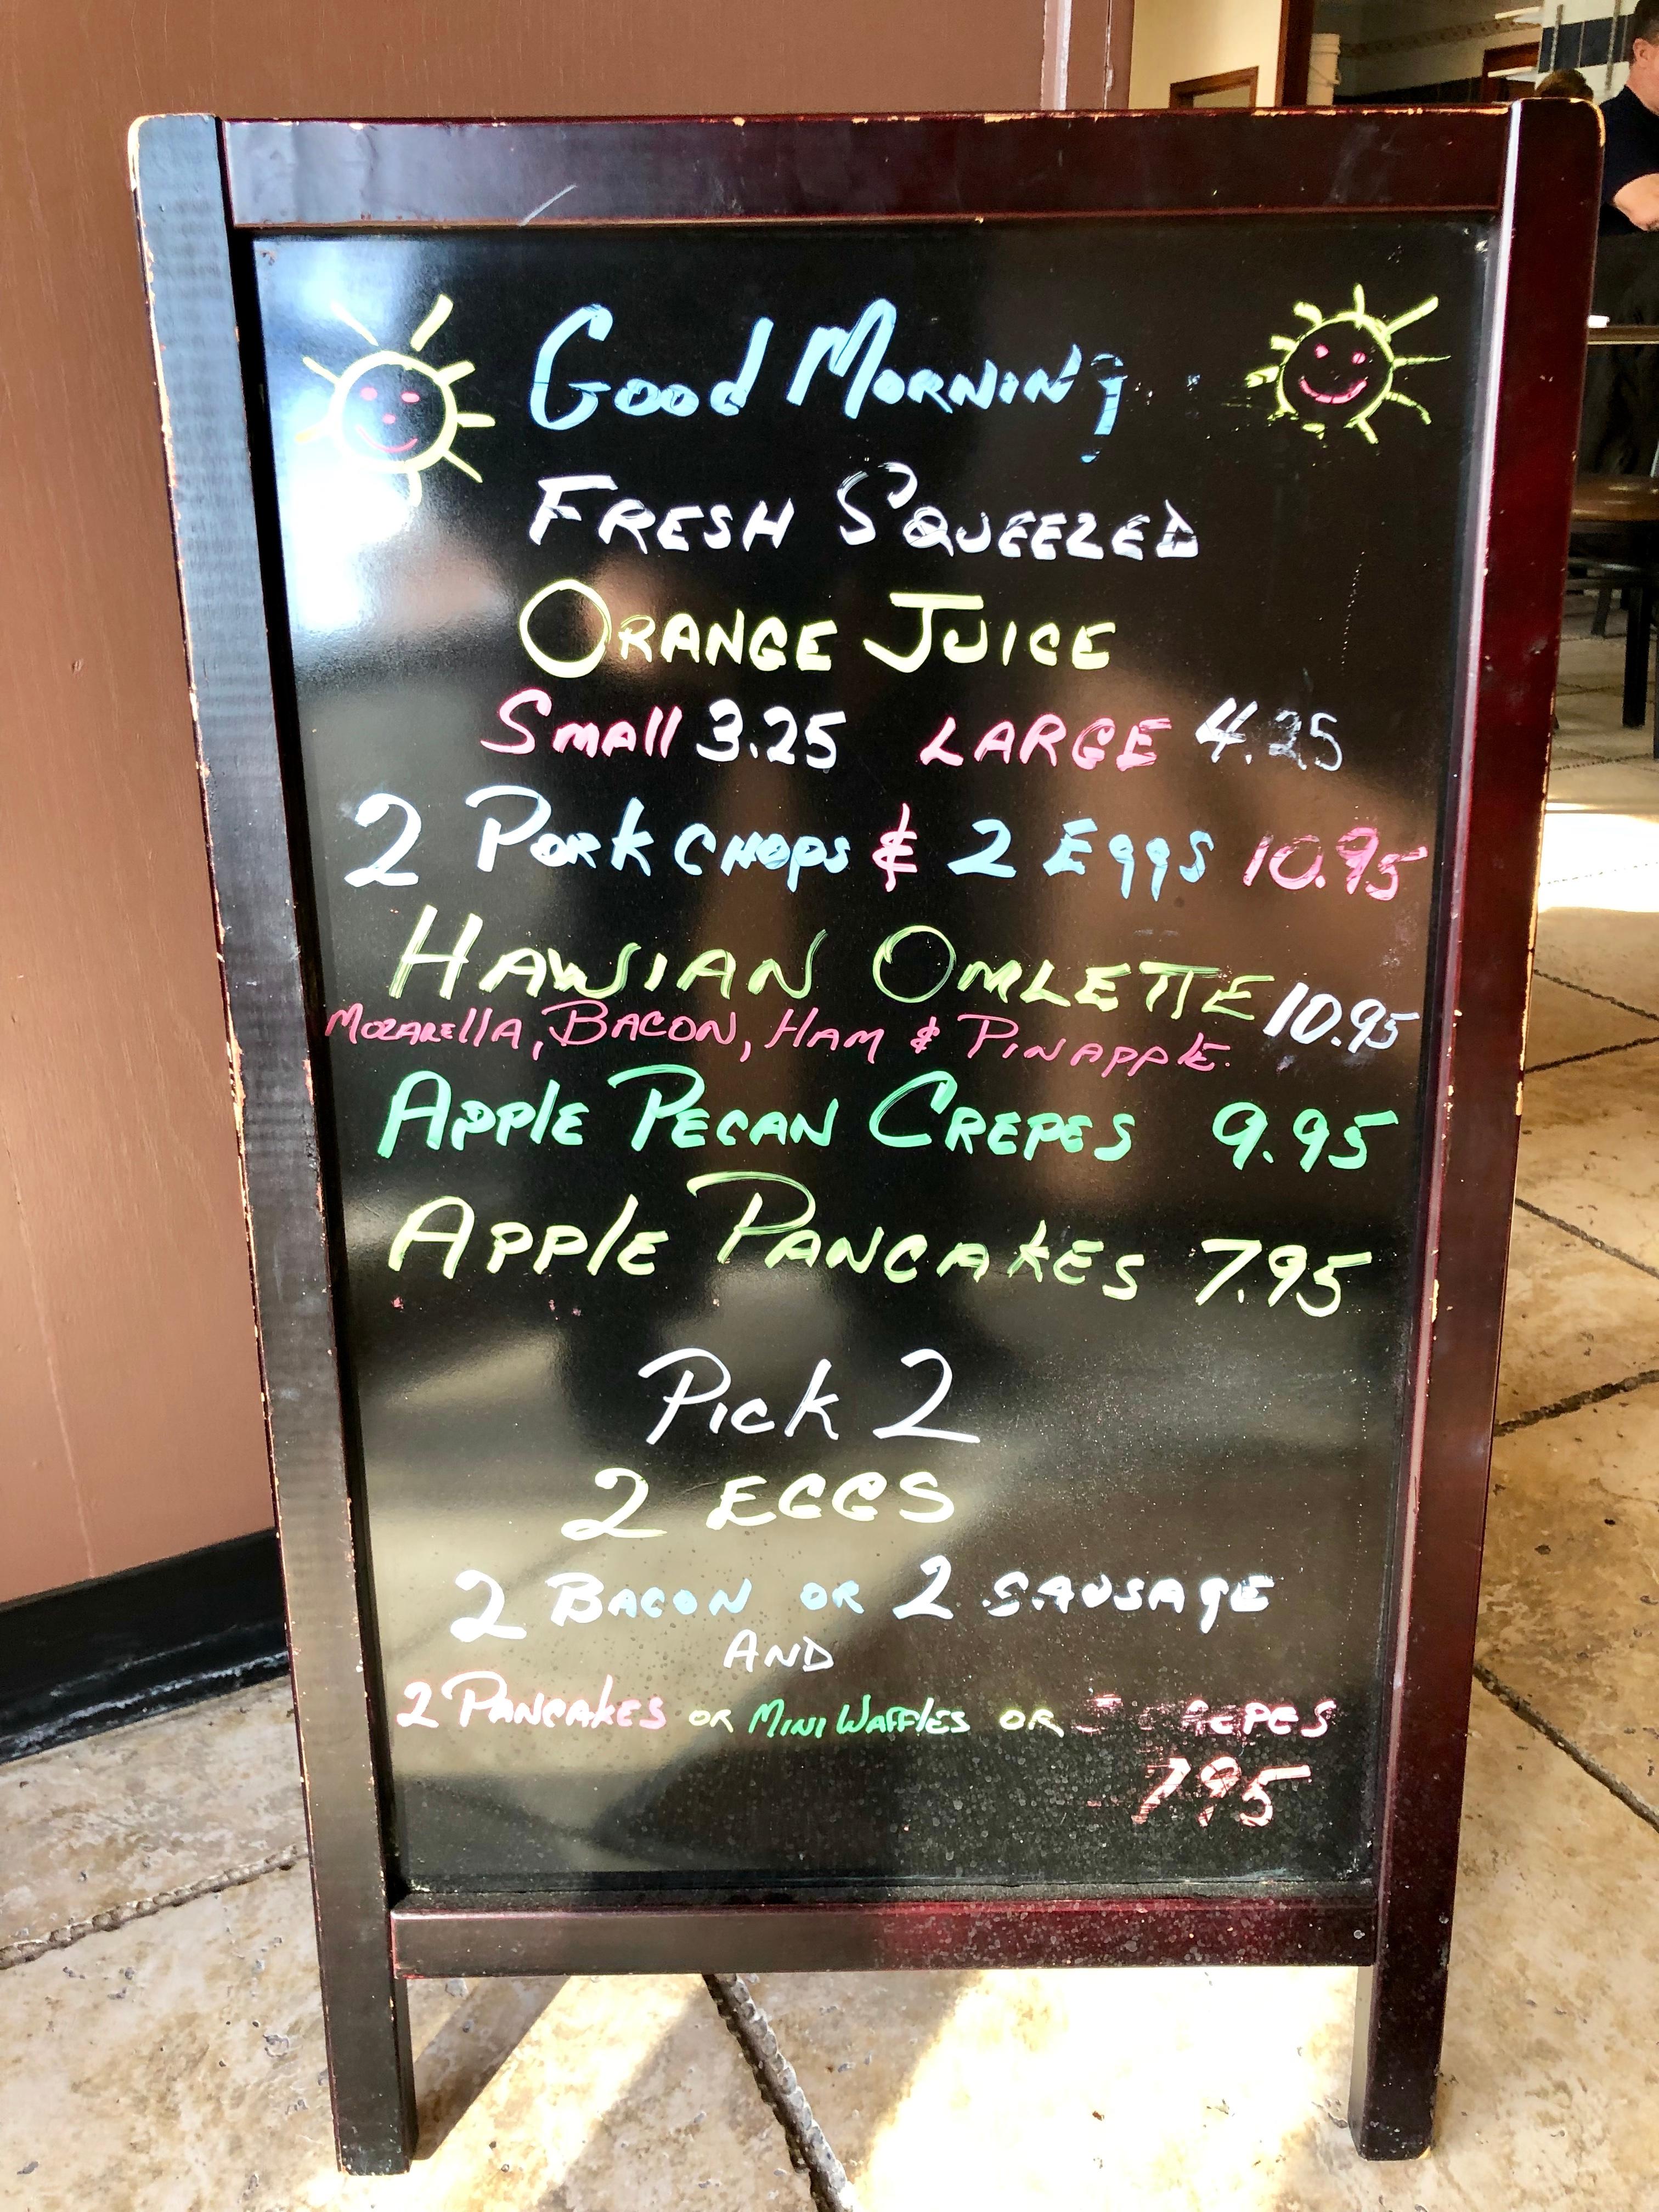 Good Morning
FRESH SQUEEZED
ORANGE JUICE
Small 3.25 LARGE 4.25
2 Pork CHOPS & 2 EggS 10.95
HAWIIAN OMLETTE 10.95
MOZARElla, BACON, HAM & PINAPPLE.
APPlE PECAN CREPES 9.95
APPlE PANCAKES 7.95
Pick 2
2 EGGS
2 BACON OR 2 SAUSAgE
AND
2 PANCAKES OR MINI WAFFlES OR
7.95